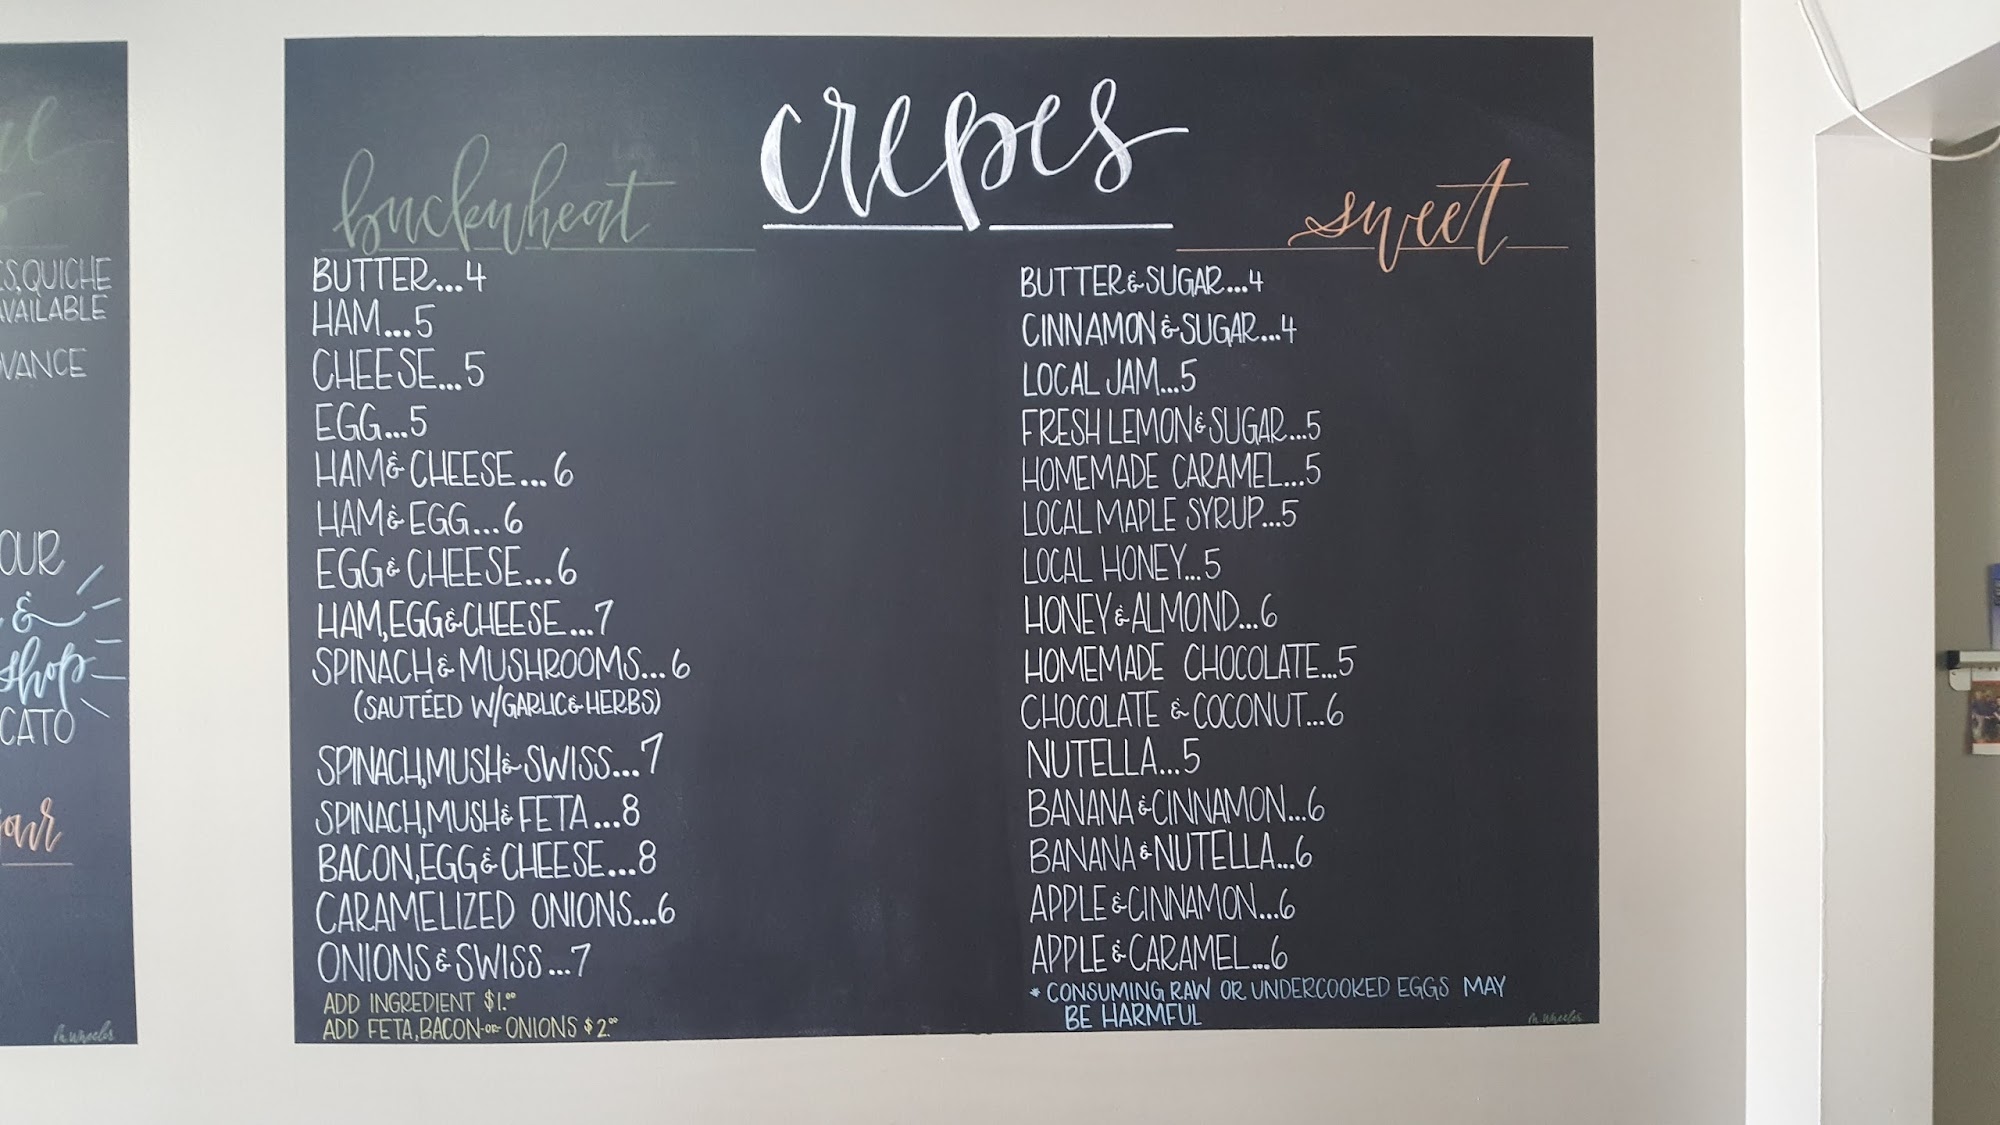 S, QUICHE
AVAILABLE
VANCE
OUR
&
shop
CATO
crepes
buckwheat
BUTTER...4
HAM...5
CHEESE...5
EGG...5
HAM & CHEESE...6
HAM & EGG...6
EGG & CHEESE...6
HAM, EGG & CHEESE...7
SPINACH & MUSHROOMS...6
(SAUTÉED W/GARLIC & HERBS)
SPINACH, MUSH & SWISS...7
SPINACH, MUSH & FETA...8
BACON, EGG & CHEESE...8
CARAMELIZED ONIONS...6
ONIONS & SWISS...7
ADD INGREDIENT $1.00
ADD FETA, BACON -OR- ONIONS $2.00
sweet
BUTTER & SUGAR...4
CINNAMON & SUGAR...4
LOCAL JAM...5
FRESH LEMON & SUGAR...5
HOMEMADE CARAMEL...5
LOCAL MAPLE SYRUP...5
LOCAL HONEY...5
HONEY & ALMOND...6
HOMEMADE CHOCOLATE...5
CHOCOLATE & COCONUT...6
NUTELLA...5
BANANA & CINNAMON...6
BANANA & NUTELLA...6
APPLE & CINNAMON...6
APPLE & CARAMEL...6
* CONSUMING RAW OR UNDERCOOKED EGGS MAY
BE HARMFUL
M. Wheeler